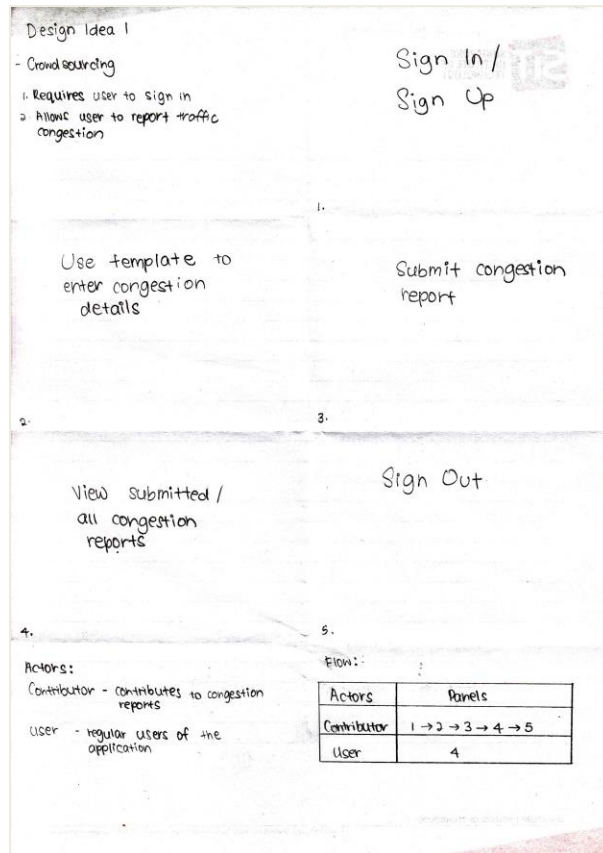 Design Idea 1
- Crowdsourcing
1. Requires user to sign in
2. Allows user to report traffic
congestion
Sign In /
Sign Up
1.
Use template to
enter congestion
details
2.
Submit congestion
report
3.
View submitted /
all congestion
reports
4.
Sign Out
5.
Actors:
Contributor - contributes to congestion
reports
User - regular users of the
application
Flow:
Actors Panels
Contributor 1 → 2 → 3 → 4 → 5
User 4